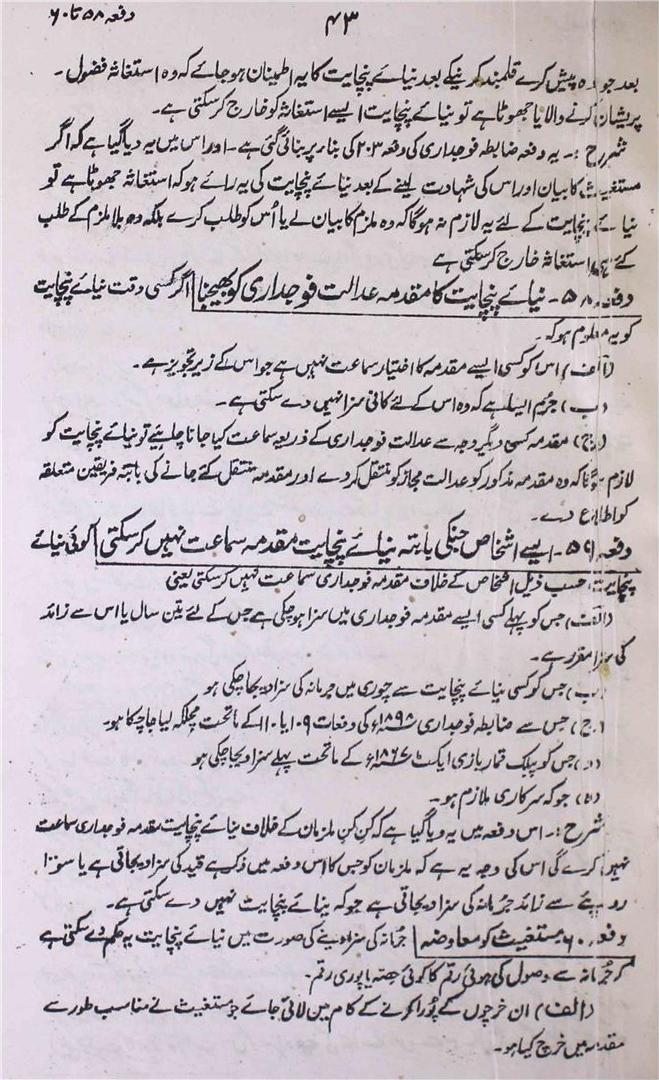 دفعہ ۵۸ تا ۶۰
۴۳
بعد جو وہ پیش کرے قلمبند کرنیکے بعد نیائے پنچایت کا یہ اطمینان ہو جائے کہ وہ استغاثہ فضول۔
پریشان کرنے والا یا جھوٹا ہے تو نیائے پنچایت ایسے استغاثہ کو خارج کر سکتی ہے۔
شرح :۔ یہ دفعہ ضابطہ فوجداری کی دفعہ ۲۰۳ کی بناء پر بنائی گئی ہے۔ اور اس میں یہ دیا گیا ہے کہ اگر
مستغیث کا بیان اور اس کی شہادت لینے کے بعد نیائے پنچایت کی یہ رائے ہو کہ استغاثہ جھوٹا ہے تو
نیائے پنچایت کے لئے یہ لازم نہ ہوگا کہ وہ ملزم کا بیان لے یا اُس کو طلب کرے بلکہ وہ بلا ملزم کے طلب
کئے ہی استغاثہ خارج کر سکتی ہے
دفعہ ۵۸۔ نیائے پنچایت کا مقدمہ عدالت فوجداری کو بھیجنا اگر کسی وقت نیائے پنچایت
کو یہ معلوم ہو کہ۔
(الف) اس کو کسی ایسے مقدمہ کا اختیار سماعت نہیں ہے جو اس کے زیر تجویز ہے۔
(ب) جرم ایسا ہے کہ وہ اس کے لئے کافی سزا نہیں دے سکتی ہے۔
(ج) مقدمہ کسی دیگر وجہ سے عدالت فوجداری کے ذریعہ سماعت کیا جانا چاہئیے تو نیائے پنچایت کو
لازم ہوگا کہ وہ مقدمہ مذکور کو عدالت مجاز کو منتقل کر دے اور مقدمہ منتقل کئے جانے کی بابتہ فریقین متعلقہ
کو اطلاع دے۔
دفعہ ۵۹۔ ایسے اشخاص جنکی بابتہ نیائے پنچایت مقدمہ سماعت نہیں کر سکتی کوئی نیائے
پنچایت حسب ذیل اشخاص کے خلاف مقدمہ فوجداری سماعت نہیں کر سکتی یعنی
(الف) جس کو پہلے کسی ایسے مقدمہ فوجداری میں سزا ہو چکی ہے جس کے لئے تین سال یا اس سے زائد
کی سزا مقرر ہے۔
(ب) جس کو کسی نیائے پنچایت سے چوری میں جرمانہ کی سزا دیجا چکی ہو
(ج) جس سے ضابطہ فوجداری ۱۸۹۸ء کی دفعات ۱۰۹ یا ۱۱۰ کے ماتحت مچلکہ لیا جا چکا ہو۔
(د) جس کو پبلک قمار بازی ایکٹ ۱۸۶۷ء کے ماتحت پہلے سزا دیجا چکی ہو
(ہ) جو کہ سرکاری ملازم ہو۔
شرح :۔ اس دفعہ میں یہ دیا گیا ہے کہ کن کن ملزمان کے خلاف نیائے پنچایت مقدمہ فوجداری سماعت
نہیں کرے گی اس کی وجہ یہ ہے کہ ملزمان کو جس کا اس دفعہ میں ذکر ہے قید کی سزا دیجاتی ہے یا سو ۱۰۰
روپئے سے زائد جرمانہ کی سزا دیجاتی ہے جو کہ نیائے پنچایت نہیں دے سکتی ہے۔
دفعہ ۶۰ مستغیث کو معاوضہ جرمانہ کی سزا دینے کی صورت میں نیائے پنچایت یہ حکم دے سکتی ہے
کہ جرمانہ سے وصول کی ہوئی رقم کا کوئی حصہ یا پوری رقم۔
(الف) ان خرچوں کے پورا کرنے کے کام میں لائی جائے جو مستغیث نے مناسب طور سے
مقدمہ میں خرچ کیا ہو۔